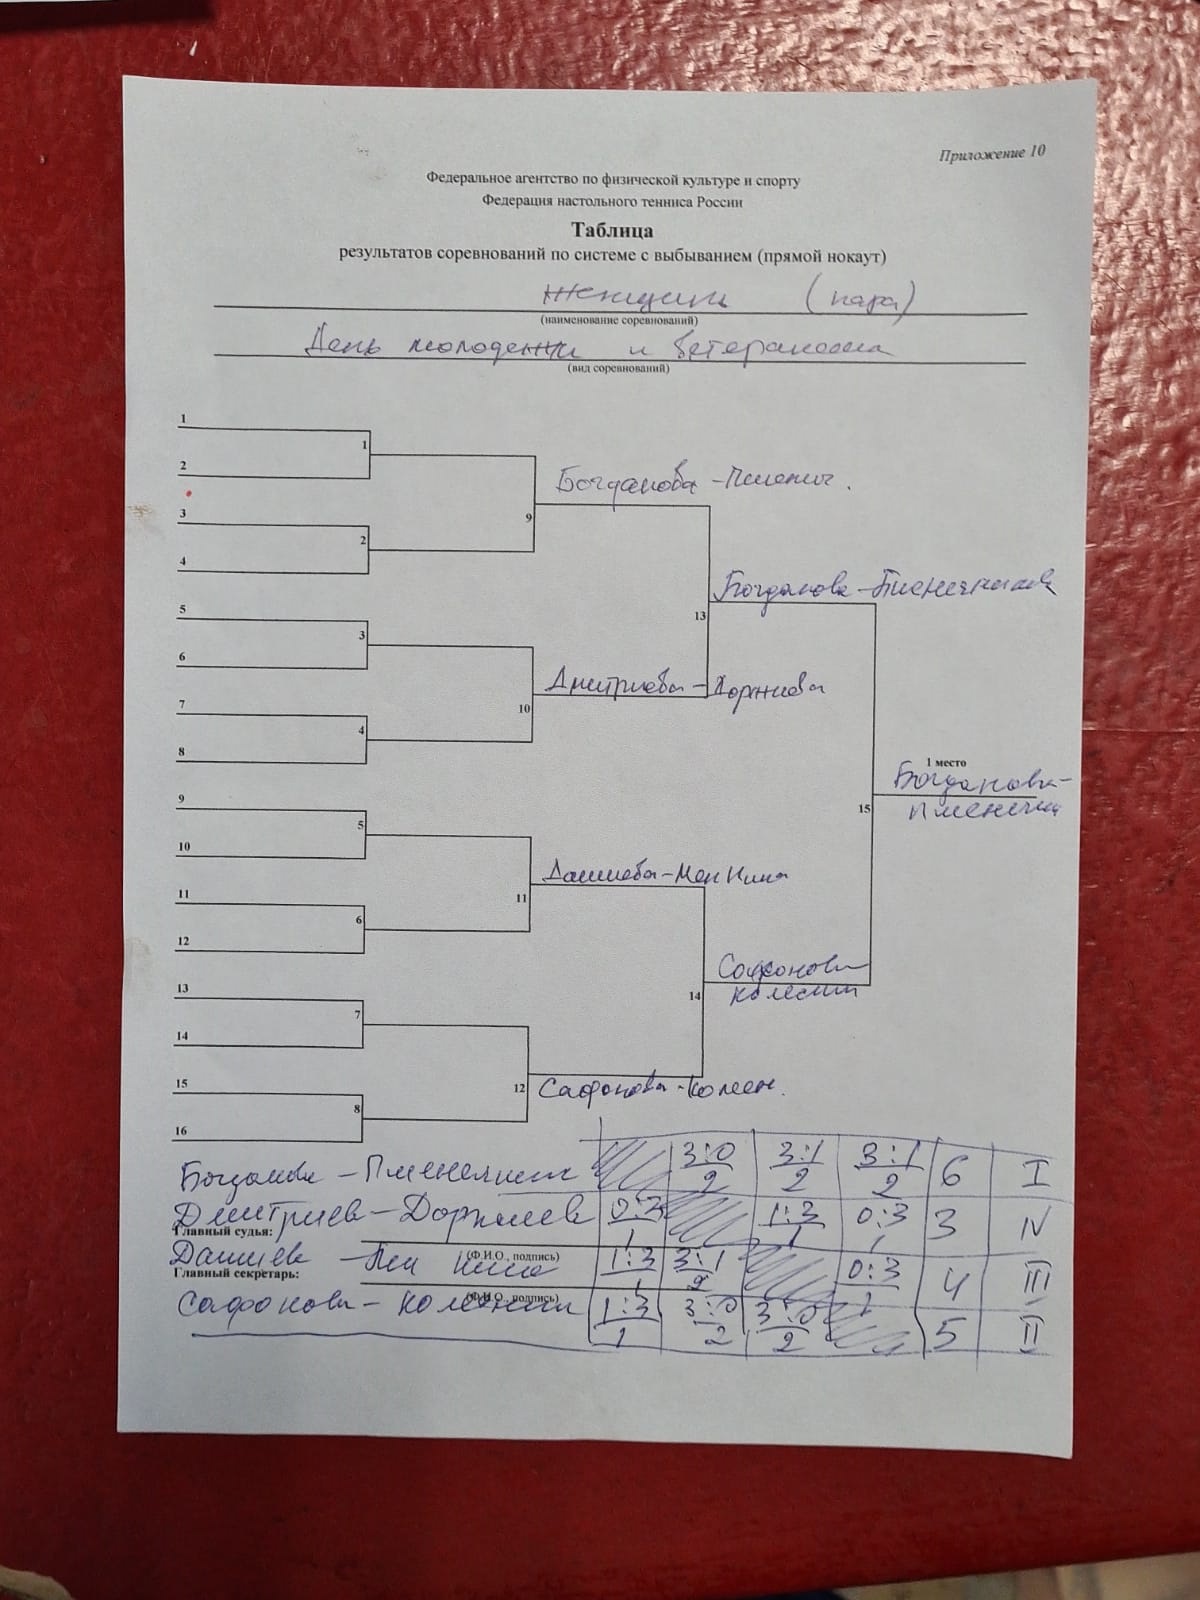 Приложение 10
Федеральное агентство по физической культуре и спорту
Федерация настольного тенниса России
Таблица
результатов соревнований по системе с выбыванием (прямой нокаут)
Женщины (пара)
(наименование соревнований)
День молодежи и ветеранов
(вид соревнований)
1
1
2
Богданова - Пшенич.
3
9
2
4
Богданова - Пшеничникова
5
13
3
6
Дмитриева - Доржиева
7
10
4
8
1 место
Богданова-
Пшеничн
9
15
5
10
Дашиева -
11
11
6
12
Сафонова
Колесни
13
14
7
14
15
12
Сафонова - Колесн.
8
16
Богданова - Пшеничник 3:0 2 3:1 2 3:1 2 6 I
Дмитриев - Доржиев 0:3 1 1:3 1 0:3 1 3 IV
Главный судья:
(Ф.И.О., подпись)
Дашиев 1:3 1 3:1 2 0:3 1 4 III
Главный секретарь:
(Ф.И.О., подпись)
Сафонова - Колесник 1:3 1 3:0 2 3:0 2 5 II